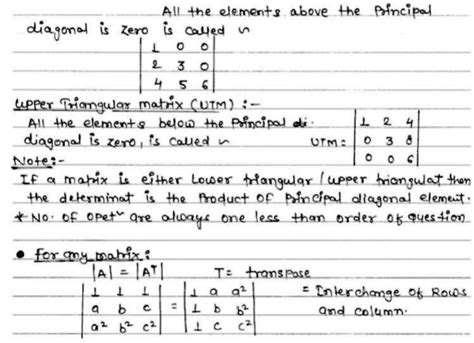 All the elements above the Principal
diagonal is zero is called
| 1 0 0 |
| 2 3 0 |
| 4 5 6 |
Upper Triangular matrix (UTM) :-
All the elements below the Principal di.
diagonal is zero, is called
UTM = | 1 2 4 |
| 0 3 8 |
| 0 0 6 |
Note:-
If a matrix is either Lower triangular / upper triangulat then
the determinat is the Product of Principal diagonal element.
* No. of opetn are always one less than order of question
• for any matrix :
|A| = |AT| T = transpose
| 1 1 1 | = | 1 a a² | = Interchange of Rows
| a b c | | 1 b b² | and column.
| a² b² c² | | 1 c c² |